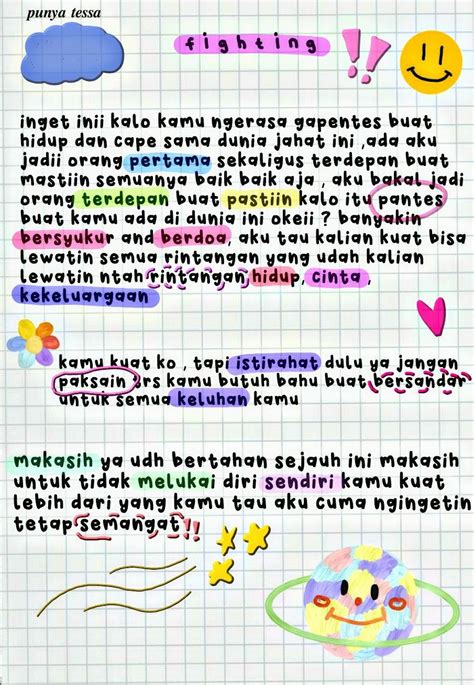 punya tessa
fighting
inget inii kalo kamu ngerasa gapentes buat
hidup dan cape sama dunia jahat ini ,ada aku
jadii orang pertama sekaligus terdepan buat
mastiin semuanya baik baik aja , aku bakal jadi
orang terdepan buat pastiin kalo itu pantes
buat kamu ada di dunia ini okeii ? banyakin
bersyukur and berdoa, aku tau kalian kuat bisa
lewatin semua rintangan yang udah kalian
lewatin ntah rintangan hidup, cinta ,
kekeluargaan
kamu kuat ko , tapi istirahat dulu ya jangan
paksain krs kamu butuh bahu buat bersandar
untuk semua keluhan kamu
makasih ya udh bertahan sejauh ini makasih
untuk tidak melukai diri sendiri kamu kuat
lebih dari yang kamu tau aku cuma ngingetin
tetap semangat!!